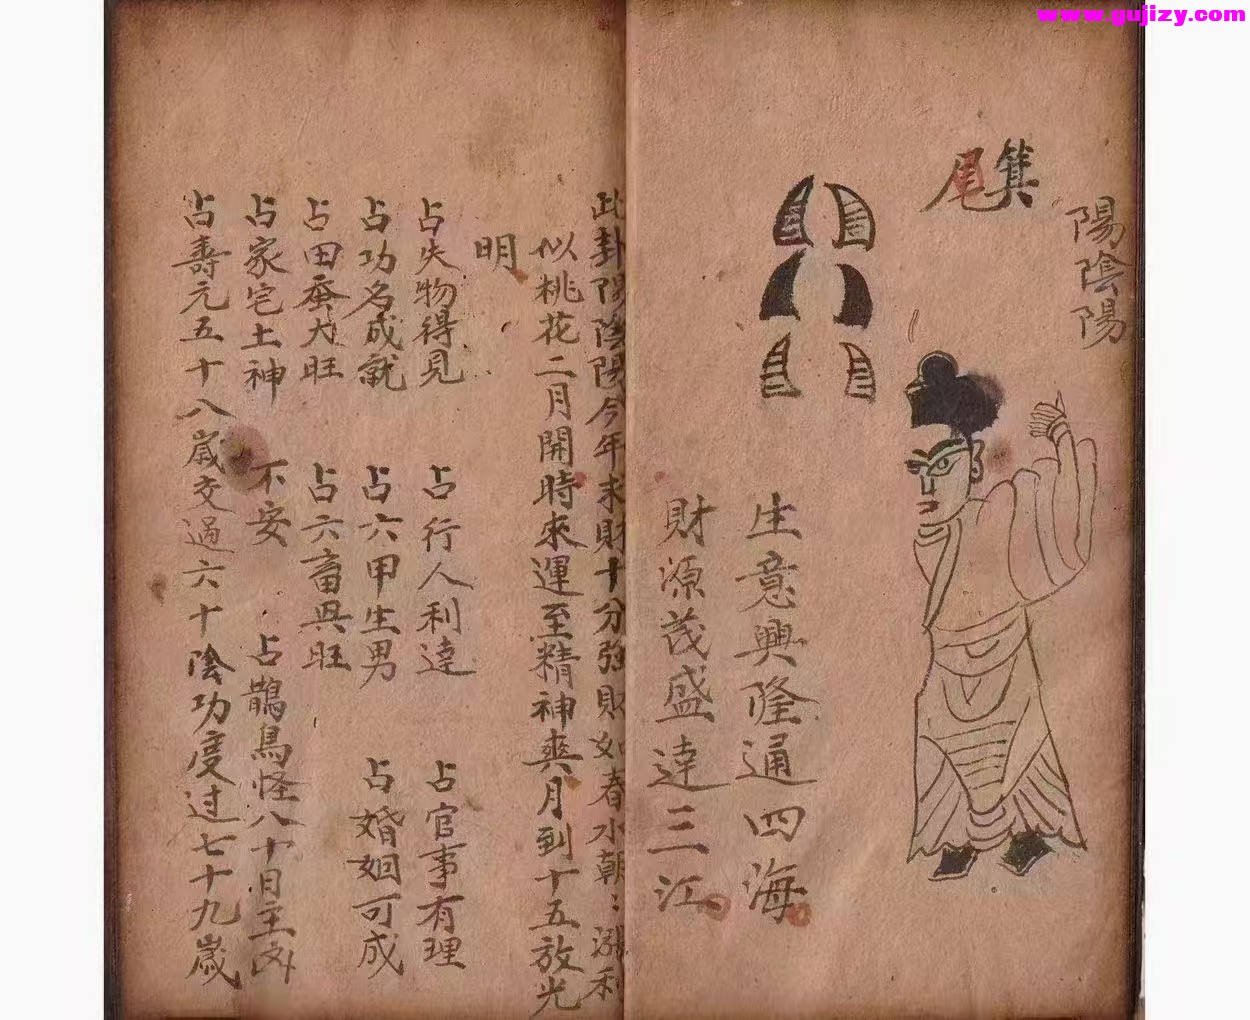 www.gujizy.com
陽陰陽
箕
尾
生意興隆通四海
財源茂盛達三江
此卦陽陰陽今年末財十分強財如春水朝〻漲利
似桃花二月開時來運至精神爽月到十五放光
明
占失物得見 占行人利達 占官事有理
占功名成就 占六甲生男 占婚姻可成
占田蚕大旺 占六畜興旺
占家宅土神不安 占鵲鳥怪八十月主凶
占壽元五十八歲交過六十陰功度过七十九歲